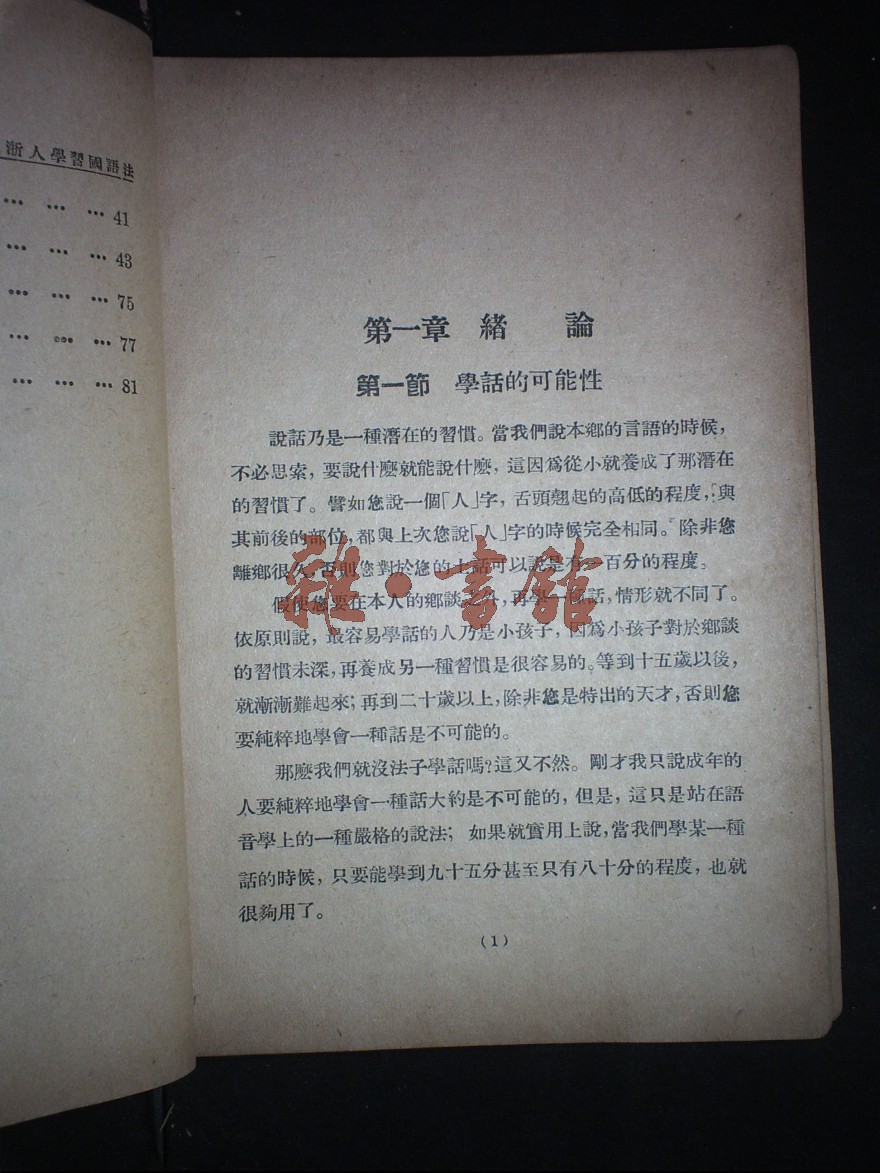 浙人學習國語法
… … … 41
… … … 43
… … … 75
… … … 77
… … … 81
第一章 緒 論
第一節 學話的可能性
說話乃是一種潛在的習慣。當我們說本鄉的言語的時候，
不必思索，要說什麼就能說什麼，這因爲從小就養成了那潛在
的習慣了。譬如您說一個「人」字，舌頭翹起的高低的程度，與
其前後的部位，都與上次您說「人」字的時候完全相同。除非您
離鄉很久，否則您對於您的土話可以說是有一百分的程度。
假使您要在本人的鄉談之外，再學一種話，情形就不同了。
依原則說，最容易學話的人乃是小孩子，因爲小孩子對於鄉談
的習慣未深，再養成另一種習慣是很容易的。等到十五歲以後，
就漸漸難起來；再到二十歲以上，除非您是特出的天才，否則您
要純粹地學會一種話是不可能的。
那麼我們就沒法子學話嗎？這又不然。剛才我只說成年的
人要純粹地學會一種話大約是不可能的，但是，這只是站在語
音學上的一種嚴格的說法；如果就實用上說，當我們學某一種
話的時候，只要能學到九十五分甚至只有八十分的程度，也就
很夠用了。
(1)
雜·書館